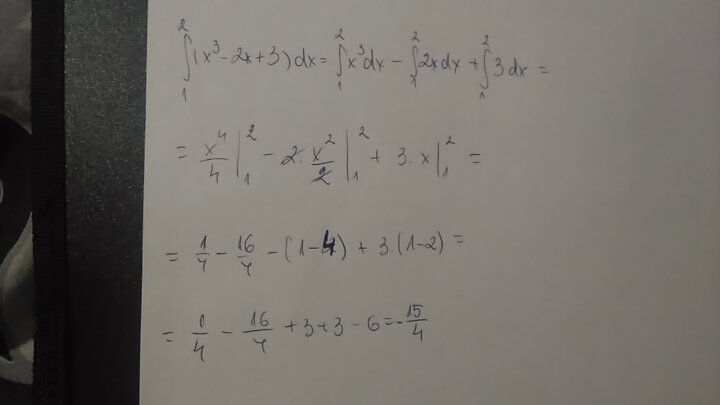 ∫₁² (x³ - 2x + 3) dx = ∫₁² x³ dx - ∫₁² 2x dx + ∫₁² 3 dx =
= x⁴/4 |₁² - 2 · x²/2 |₁² + 3 · x |₁² =
= 1/4 - 16/4 - (1 - 4) + 3 (1 - 2) =
= 1/4 - 16/4 + 3 + 3 - 6 = - 15/4